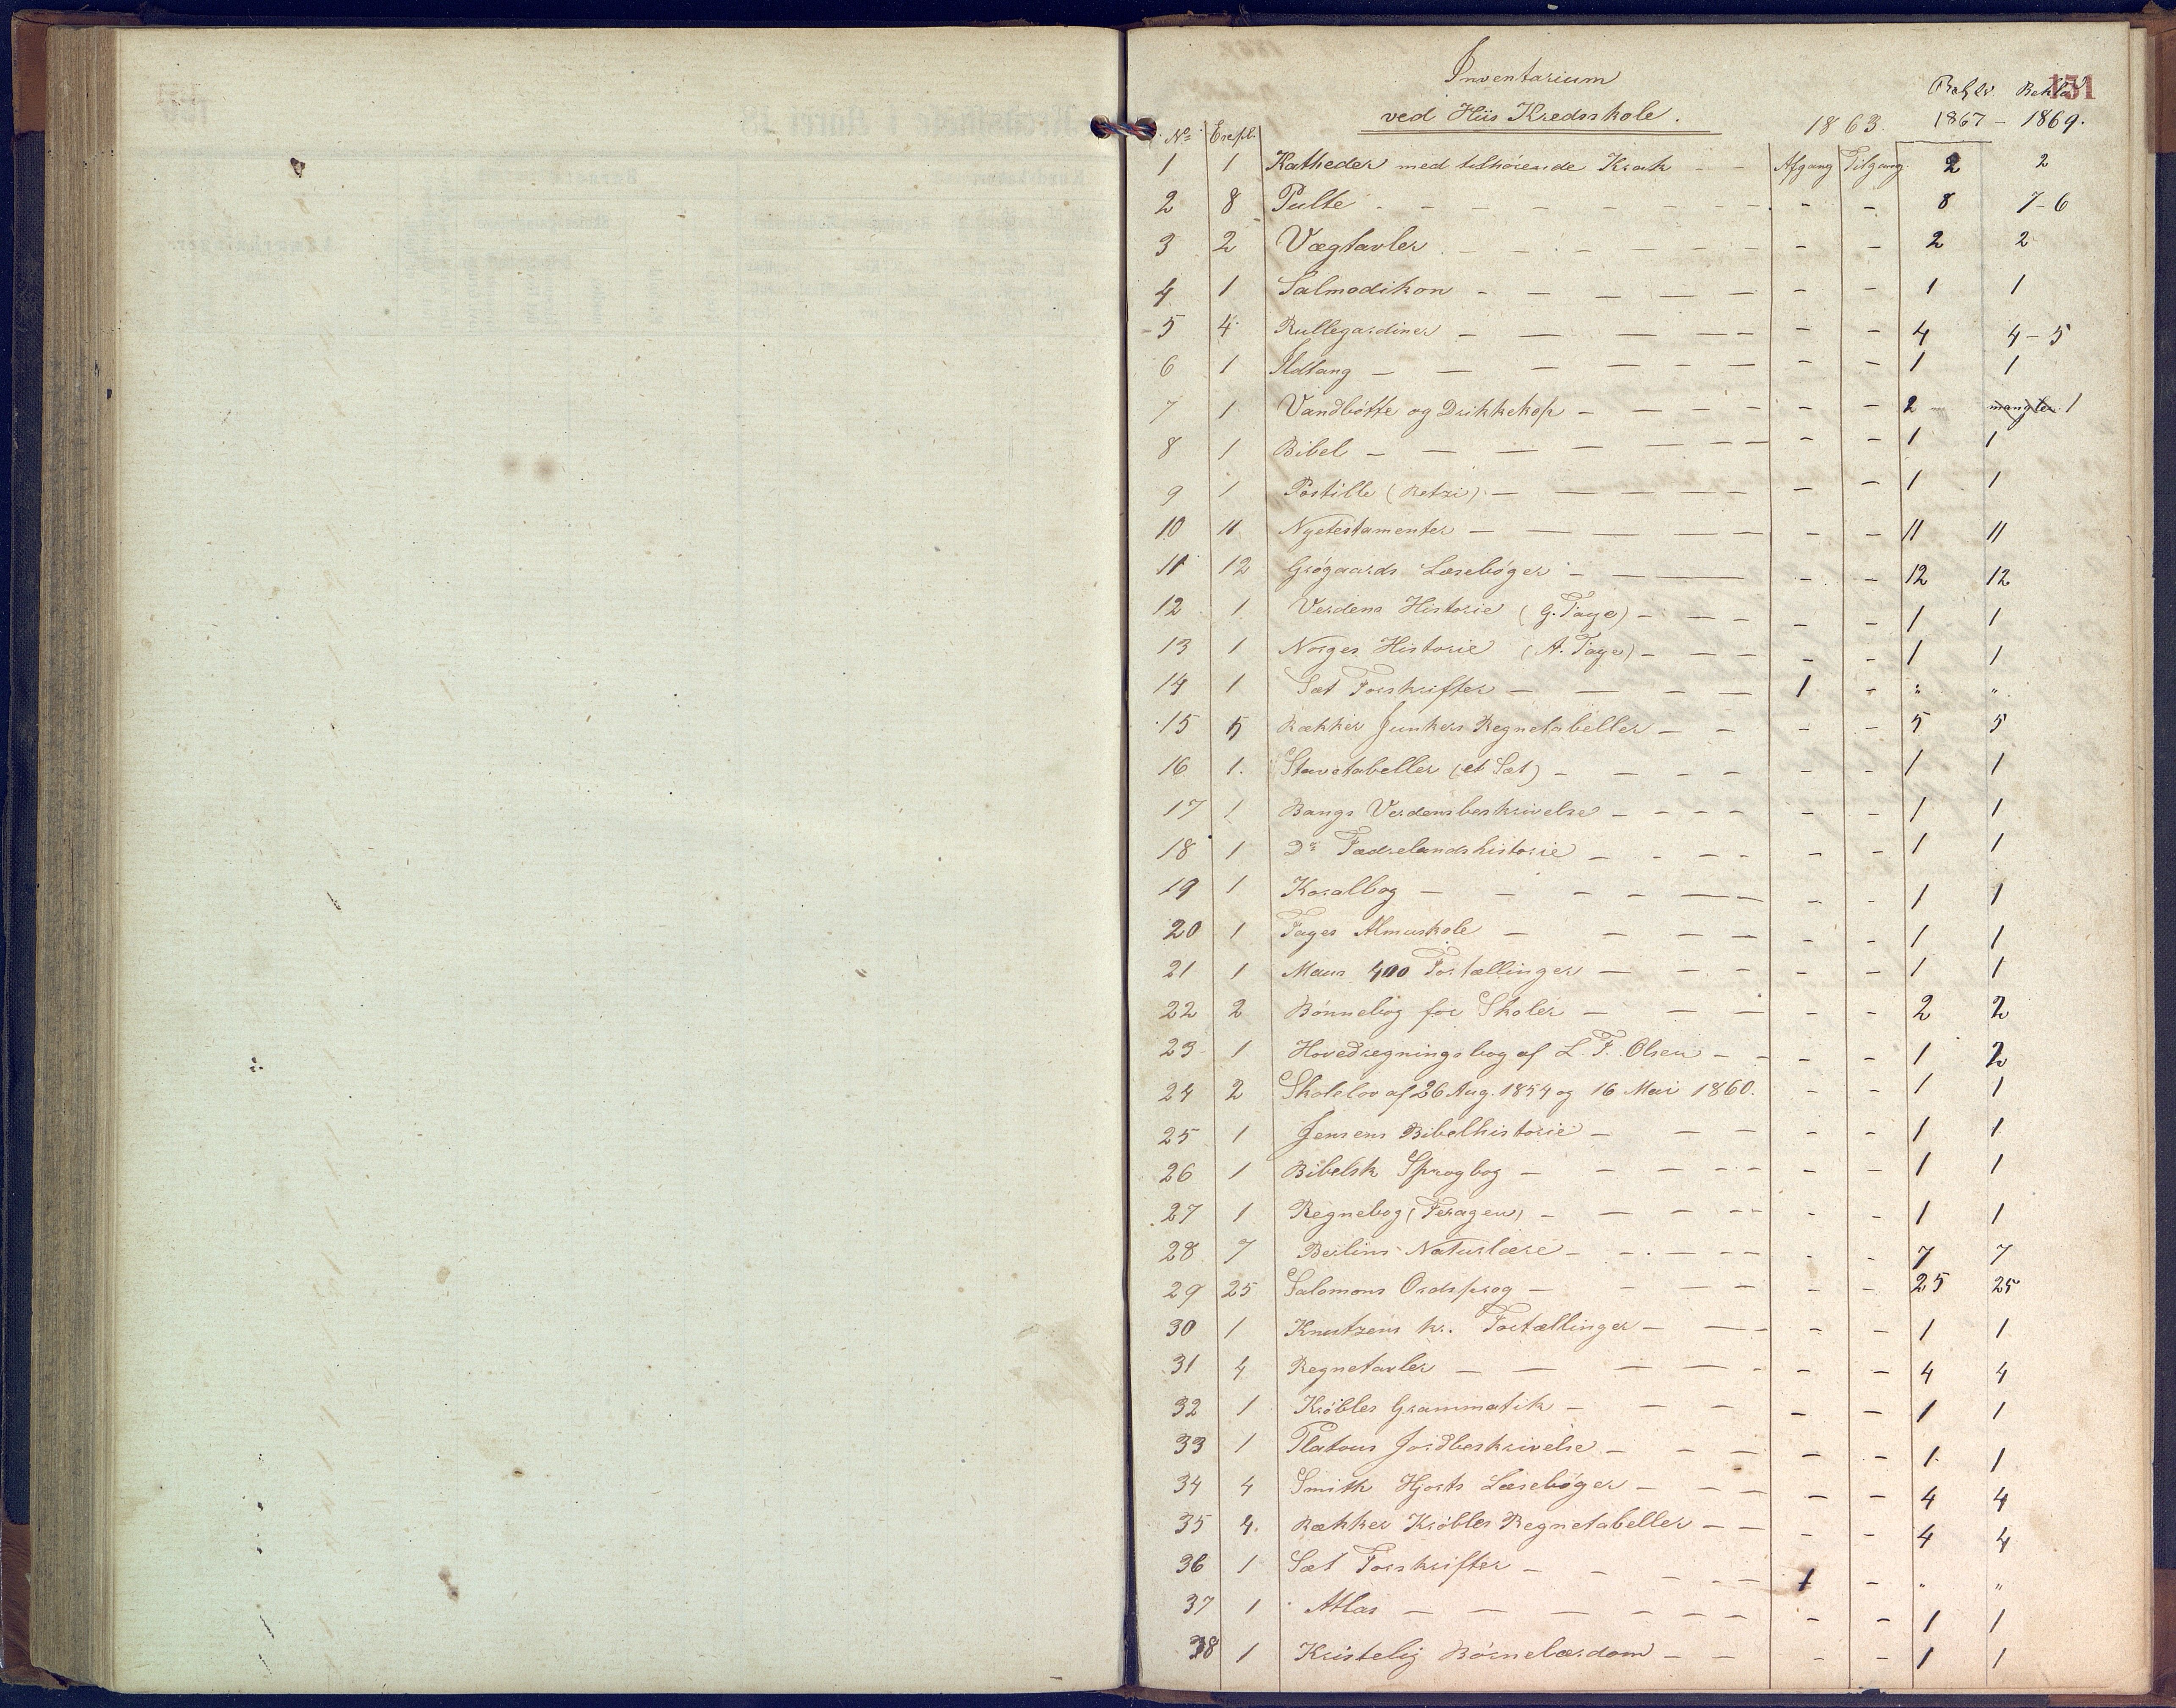 131
Inventarium
ved Hiis Kredsskole.
1863. 1867 - 1869.
No Expl. Afgang Tilgang
1 1 Katheder med tilhørende Krak - - 2 2
2 8 Pulte - - 8 7-6
3 2 Vægtavler - - 2 2
4 1 Salmodikon - - 1 1
5 4 Rullegardiner - - 4 4-5
6 1 Ildtang - - 1 1
7 1 Vandbøtte og Drikkekop - - 2 mangler 1
8 1 Bibel - - 1 1
9 1 Postille (Retzi) - - 1 1
10 11 Nyetestamenter - - 11 11
11 12 Grøgaards Læsebøger - - 12 12
12 1 Verdens Historie (G. Faye) - - 1 1
13 1 Norges Historie (A. Faye) - - 1 1
14 1 Sæt Forskrifter - 1 - " "
15 5 Rækker Junkers Regnetabeller - - 5 5
16 1. Stavetabeller (et Sæt) - - 1 1
17 1 Bangs Verdensbeskrivelse - - 1 1
18 1 Do Fædrelandshistorie - - 1 1
19 1 Koralbog - - 1 1
20 1 Fayes Almuskole - - 1 1
21 1 Maus 400 Fortællinger - - 1 1
22 2 Bønnebog for Skoler - - 2 2
23 1 Hovedregningsbog af L. F. Olsen - - 1 2
24 2 Skolelov af 26 Aug. 1854 og 16 Mai 1860. - - 1 1
25 1 Jensens Bibelhistorie - - 1 1
26 1 Bibelsk Sprogbog - - 1 1
27 1 Regnebog (Feragen) - - 1 1
28 7 Berlins Naturlære - - 7 7
29 25 Salomons Ordsprog - - 25 25
30 1 Knutzens kr. Fortællinger - - 1 1
31 4 Regnetavler - - 4 4
32 1 Krøbles Grammatik - - 1 1
33 1 Platous Jordbeskrivelse - - 1 1
34 4 Smith Hjorts Læsebøger - - 4 4
35 4. Rækker Krøbles Regnetabeller - - 4 4
36 1 Sæt Forskrifter - 1 - " "
37 1 Atlas - - 1 1
38 1 Kristelig Børnelærdom - - 1 1